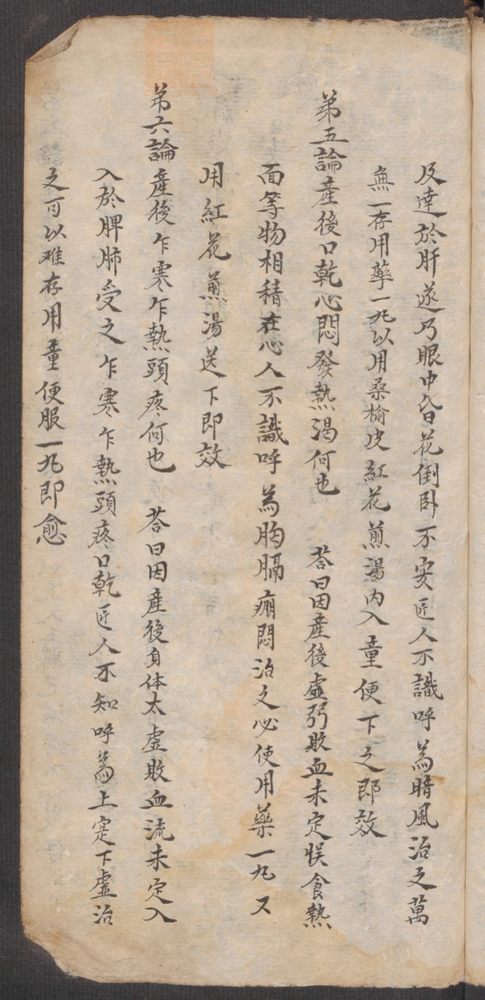 及達於肝遂乃眼中昏花倒卧不安匠人不識呼為暗風治之萬
無一存用藥一丸以用桑榆皮紅花煎湯內入童便下之即效
第五論產後口乾心悶發熱渴何也 荅曰因產後虛弱敗血未定悮食熱
面等物相積在心人不識呼為胸膈痈悶治之必使用藥一丸又
用紅花煎湯送下即效
第六論產後乍寒乍熱頭疼何也 荅曰因產後身体太虛敗血流未定入
入於脾肺受之乍寒乍熱頭疼口乾匠人不知呼為上寔下虛治
之可以难存用童便服一丸即愈